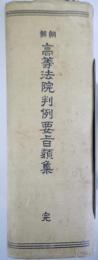 朝鮮
高等法院判例要旨類集
完